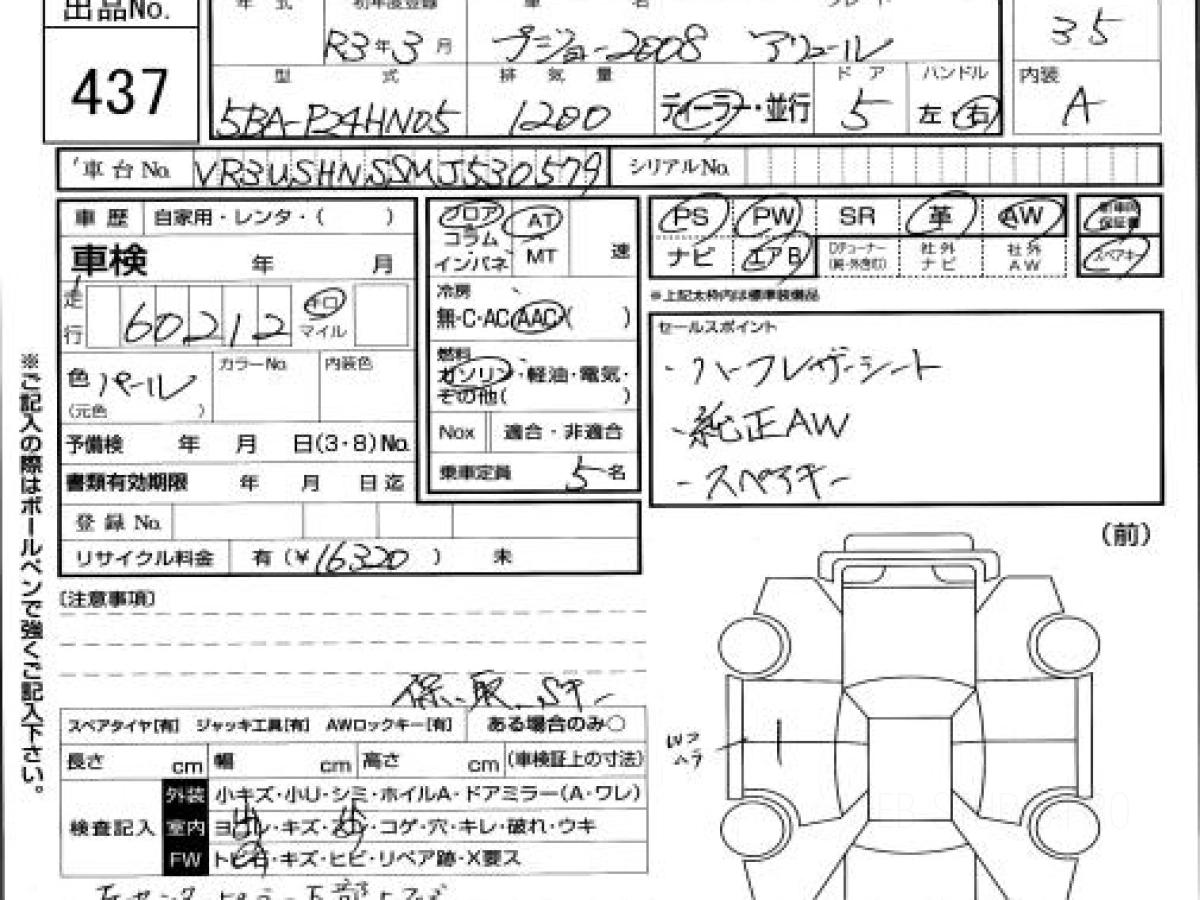 出品No.
437
年 式
初年度登録
車 名
グレード
R3年3月
プジョー2008 アリュール
35
型 式
排 気 量
ド ア
ハンドル
内装
5BA-P24HN05
1200
ディーラー・並行
5
左・右
A
車台No. VR3USHNSSMJ530579
シリアルNo.
車 歴 自家用・レンタ・( )
車検 年 月
走行 60212 キロ マイル
色 パール
(元色 )
カラーNo.
内装色
予備検 年 月 日(3・8)No.
書類有効期限 年 月 日迄
登 録 No.
リサイクル料金 有(¥16320) 未
フロア
コラム
インパネ
AT
MT
速
冷房
無・C・AC・AAC( )
燃料
ガソリン・軽油・電気・
その他( )
Nox 適合・非適合
乗車定員 5名
PS PW SR 革 AW
ナビ エアB 社外ナビ 社外AW
保証書
スペアキー
※上記太枠内は標準装備品
セールスポイント
・ハーフレザーシート
・純正AW
・スペアキー
(前)
〔注意事項〕
保、取、Sキー
スペアタイヤ[有] ジャッキ工具[有] AWロックキー[有] ある場合のみ○
長さ cm 幅 cm 高さ cm (車検証上の寸法)
検査記入
外装 小キズ・小U・シミ・ホイルA・ドアミラー(A・ワレ)
室内 ヨゴレ・キズ・スレ・コゲ・穴・キレ・破れ・ウキ
FW トビ石・キズ・ヒビ・リペア跡・X要ス
※ご記入の際はボールペンで強くご記入下さい。